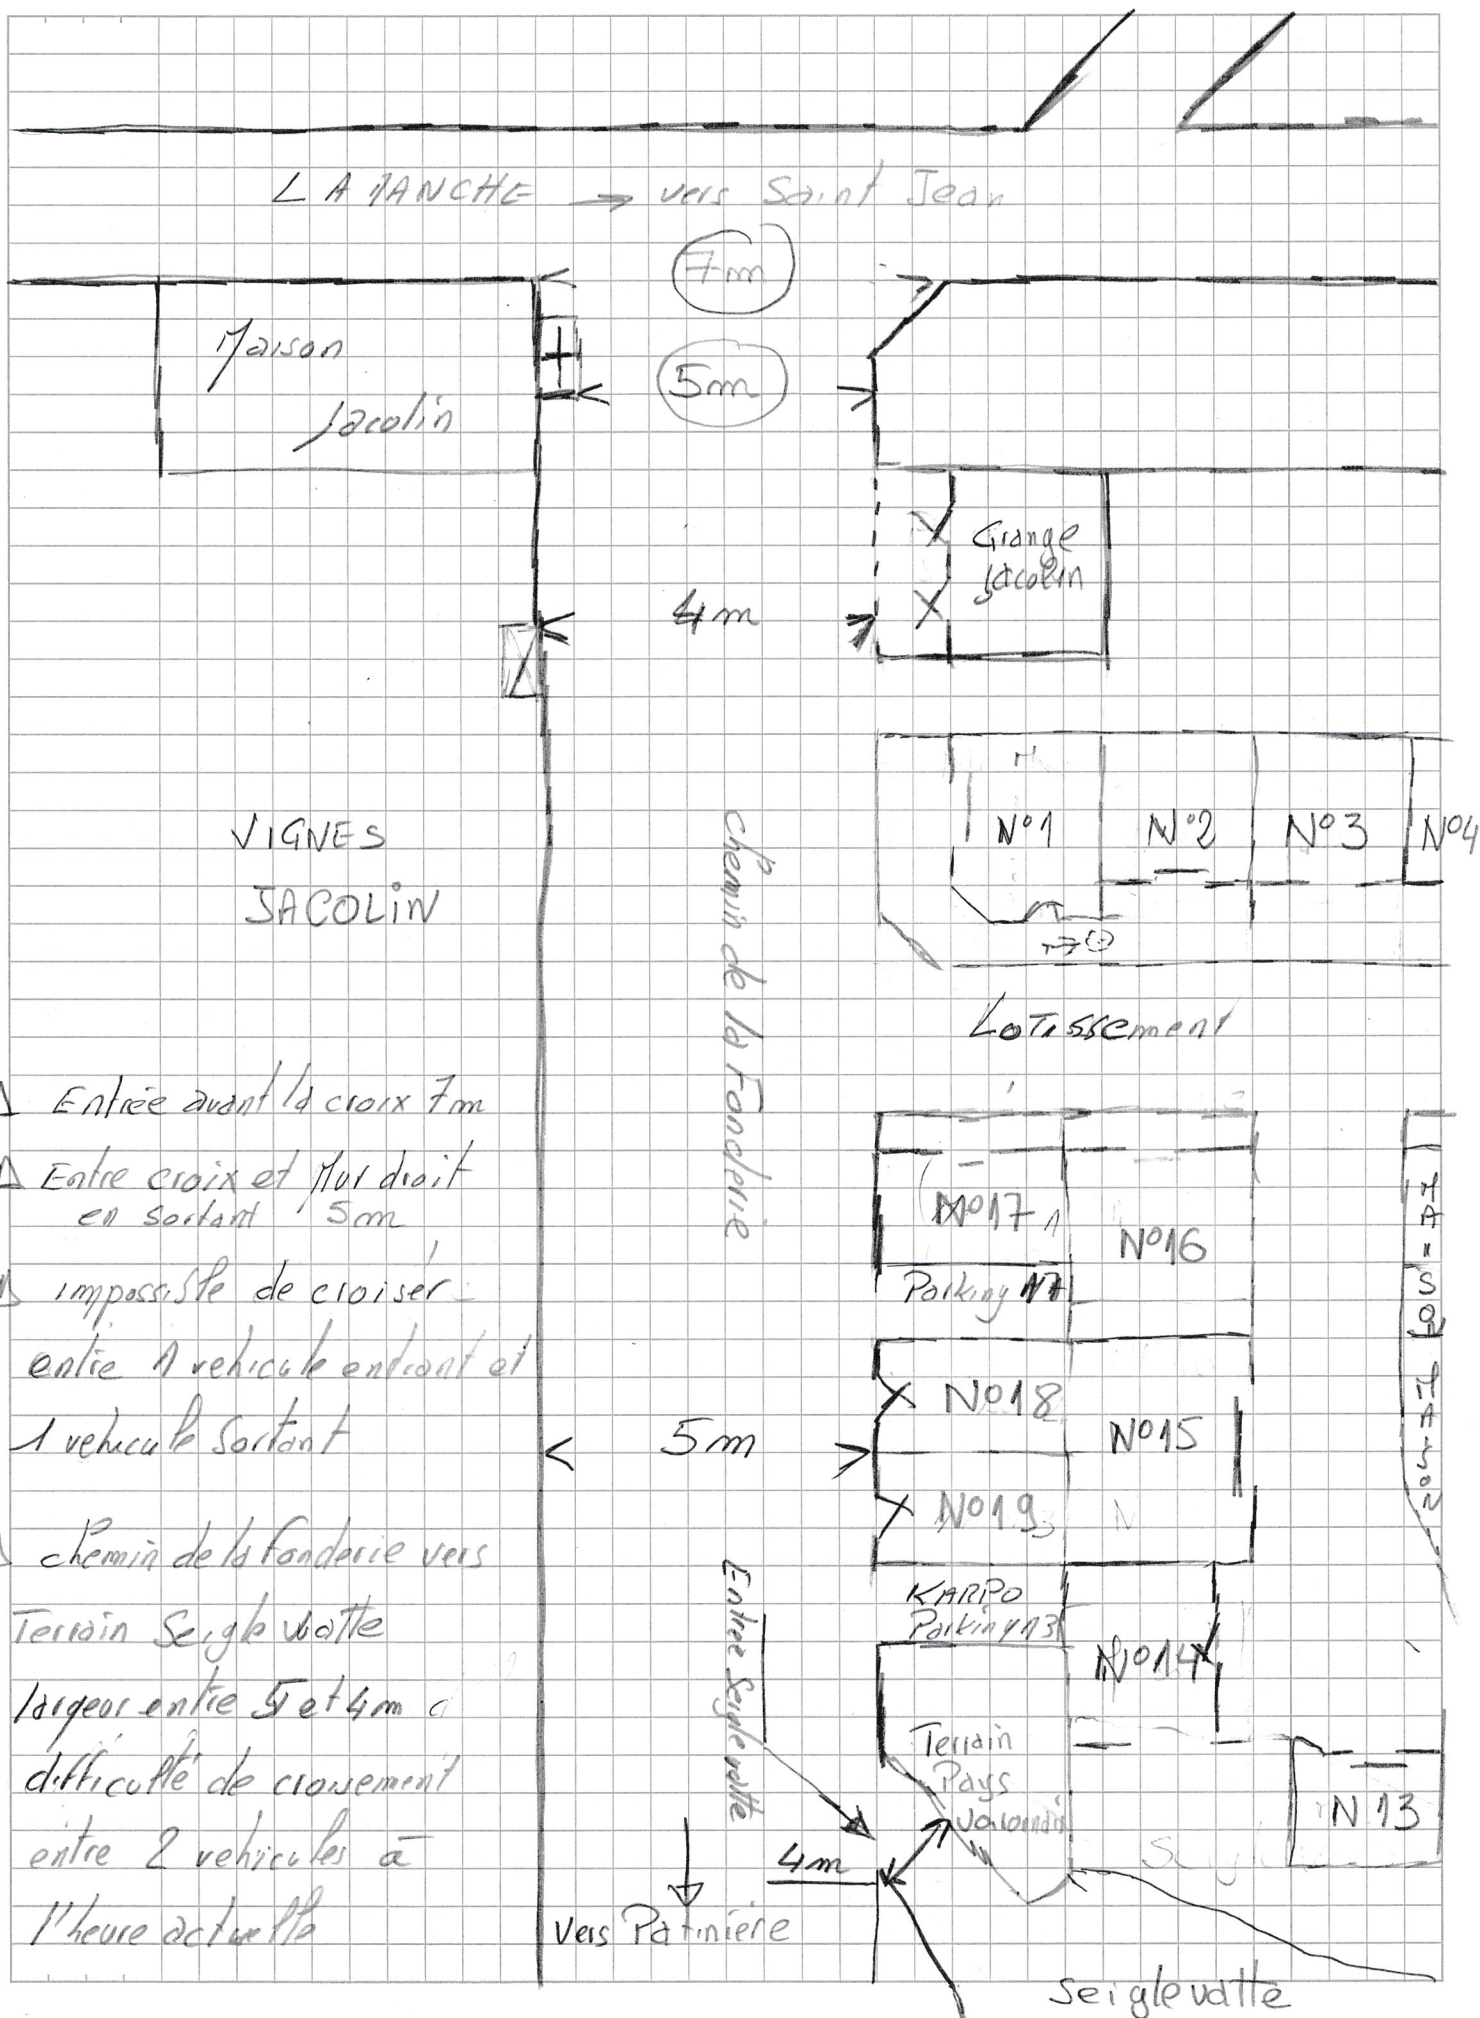 LA MANCHE → vers Saint Jean
7m
Maison
Jacolin
5m
Grange
Jacolin
4m
N°1
N°2
N°3
N°4
VIGNES
JACOLIN
Chemin de la Fonderie
LoTissement
Entrée avant la croix 7m
Entre croix et Mur droit
en sortant 5m
impossible de croiser
entre 1 vehicule entrant et
1 vehicule sortant
chemin de la Fonderie vers
Terrain Seigle vatte
largeur entre 5 et 4m
difficulté de croisement
entre 2 vehicules à
l'heure actuelle
N°17
N°16
Parking 17
N°18
N°15
5m
N°19
KARPO
Parking 13
N°14
Entrée Seiglevatte
Terrain
Pays
N 13
4m
Vers Patinière
Seiglevatte